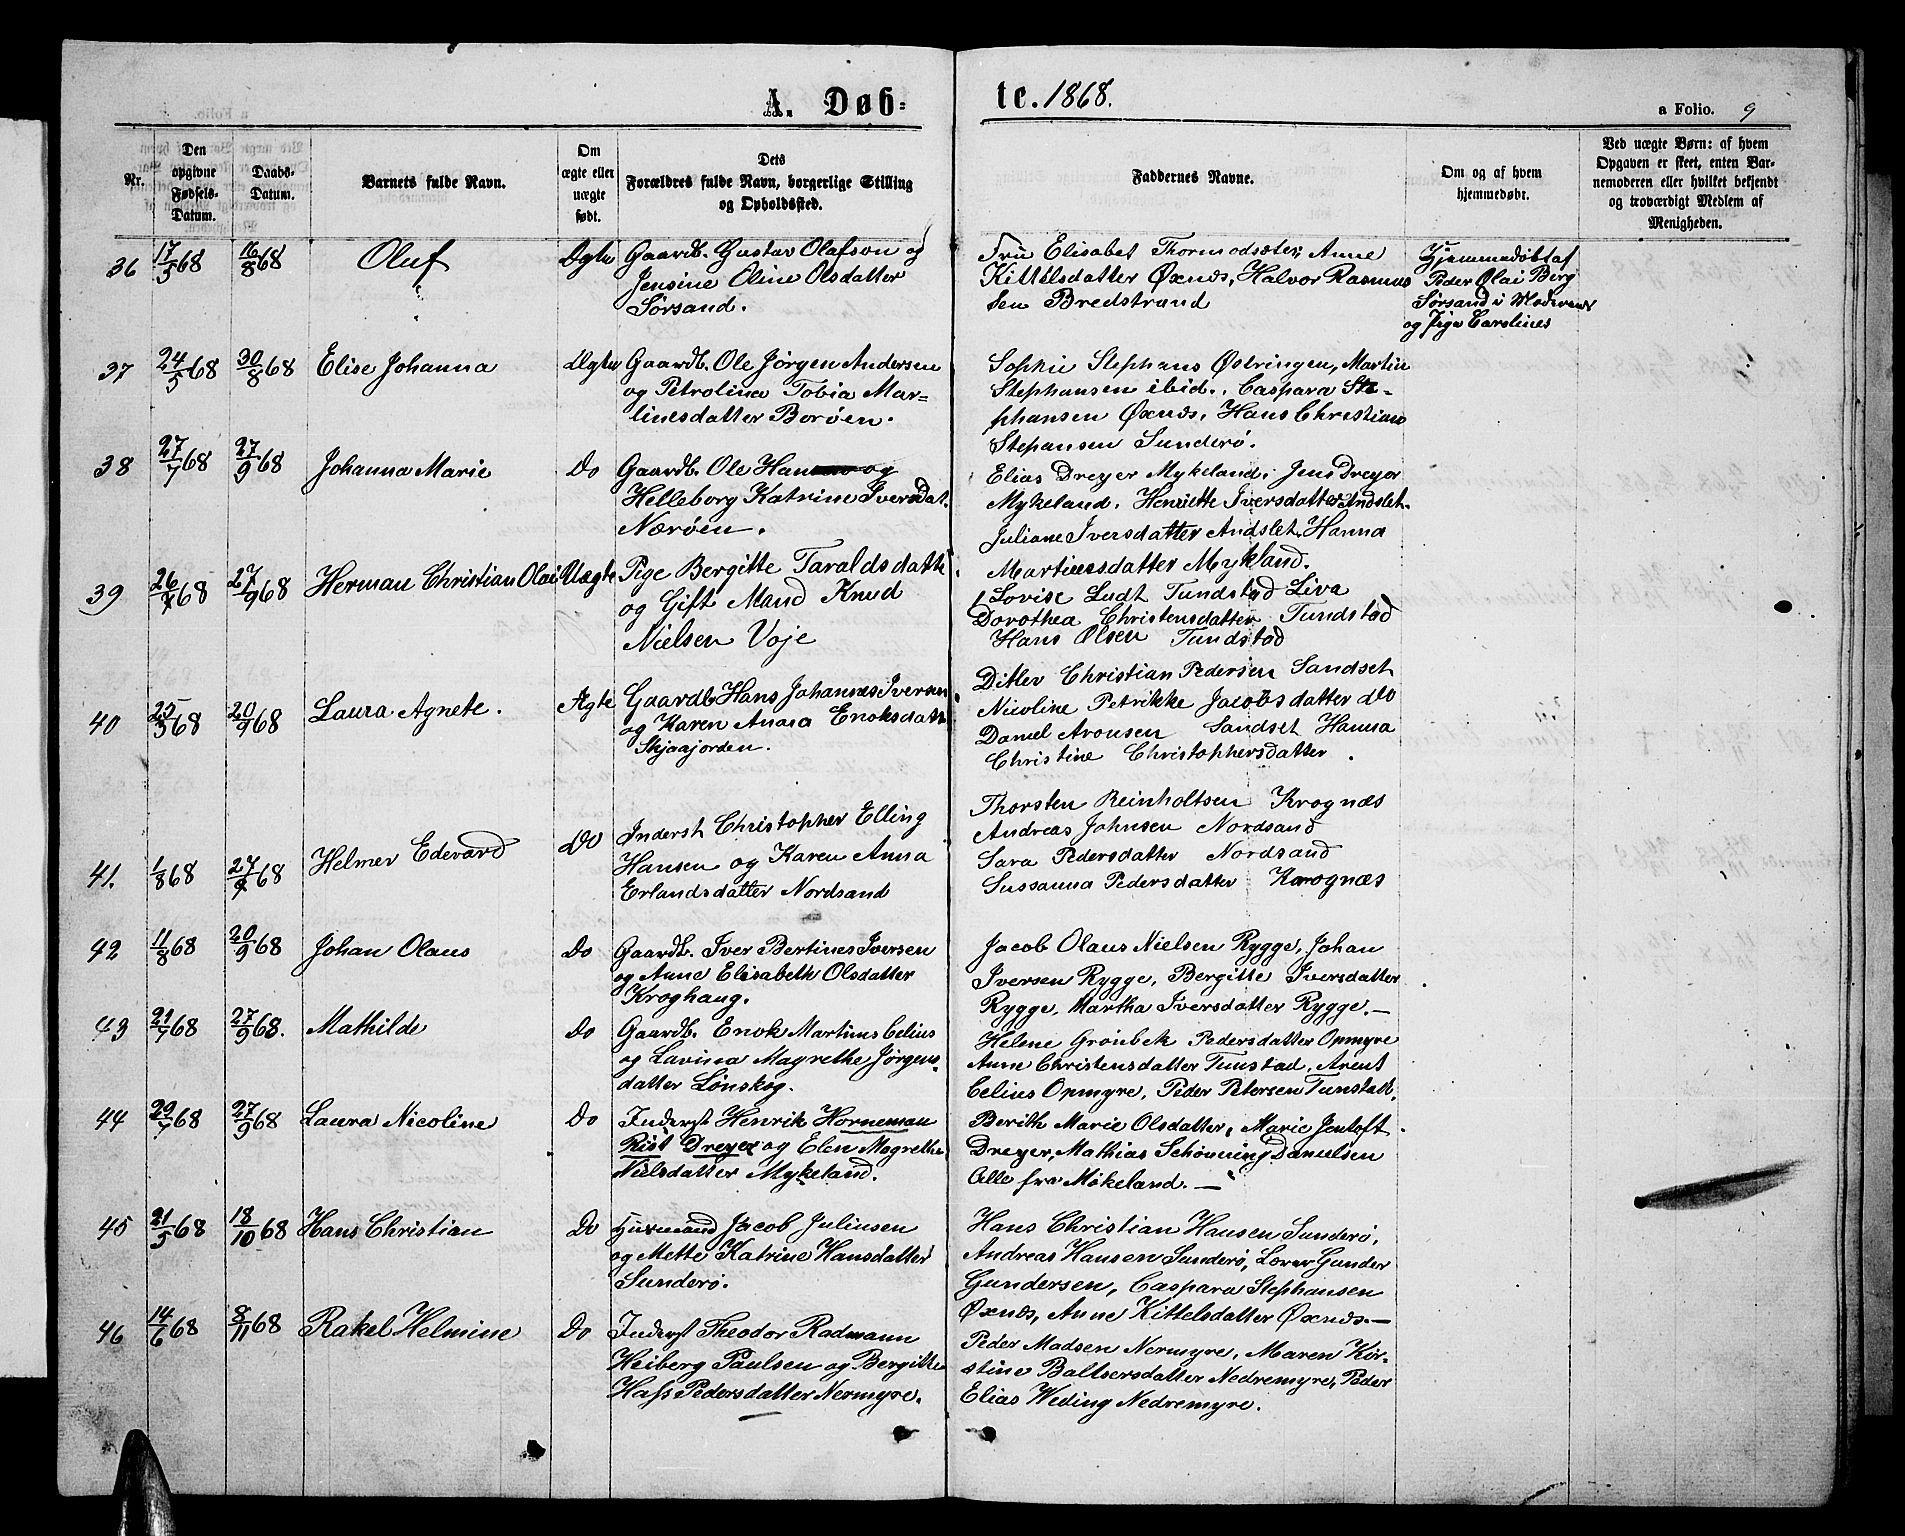 A. Døb-
te. 1868.
a Folio. 9
Nr.
Den
opgivne
Fødsels-
Datum.
Daabs-
Datum.
Barnets fulde Navn.
Om
ægte eller
uægte
født.
Dets
Forældres fulde Navn, borgerlige Stilling
og Opholdssted.
Faddernes Navne.
Om og af hvem
hjemmedøbt.
Ved uægte Børn: af hvem
Opgaven er skeet, enten Bar-
nemoderen eller hvilket bekjendt
og troværdigt Medlem af
Menigheden.
36 17/5 68 16/8 68 Oluf Ægte
Gaardb. Gustav Olafson og
Jensine Oline Olsdatter
Sørsand.
Fru Elisabet Thormodsæter, Anne
Kittelsdatter Øxnæs, Halvor Rasmus
sen Bredstrand
Hjemmedøbt af
Peder Olai Berg
Sørsand i Moderens
og Pige Carolines
37 24/5 68 30/8 68 Elise Johanna Ægte
Gaardb. Ole Jørgen Andersen
og Petrolina Tobia Mar=
tinesdatter Borøen.
Sophie Stephans Østringen, Martin
Stephansen ibid., Caspara Ste-
phansen Øxnæs, Hans Christian
Stepansen Sunderø.
38 27/7 68 27/9 68 Johanna Marie Do
Gaardb. Ole Hansen og
Helleborg Katrine Iversdat.
Nærøen.
Elias Dreyer Mykeland, Jens Dreyer
Mykeland, Henriette Iversdatter Andslet.
Juliane Iversdatter Andslet, Hanna
Martinesdatter Mykland.
39 26/7 68 27/9 68 Herman Christian Olai Uægte
Pige Bergitte Taraldsdatte
og Gift Mand Knud
Nielsen Voje
Lovise Ludt Tundstad Liva
Dorothea Christensdatter Tundstad
Hans Olsen Tundstad
40 25/5 68 20/9 68 Laura Agnete. Ægte
Gaardb Hans Johannes Iversen
og Karen Anara Enoksdatte
Skjaajorden.
Ditlev Christian Pedersen Sandset
Nicoline Petrikke Jacobsdatter do
Daniel Aronsen Sandset Hanna
Christine Christophersdatter
41. 1/8 68 27/9 68 Helmer Edevard Do
Inderst Christopher Elling
Hansen og Karen Anna
Erlandsdatter Nordsand
Thorsten Reinholtsen Krognæs
Andreas Johnsen Nordsand
Sara Pedersdatter Nordsand
Sussanna Pedersdatter Krognæs
42 11/8 68 20/9 68 Johan Olaus Do
Gaardb. Iver Bertines Iversen
og Anne Elisabeth Olsdatter
Kroghaug.
Jacob Olaus Nielsen Rygge, Johan
Iversen Rygge, Bergitte Iversdatter
Rygge, Martha Iversdatter Rygge.—
43 21/7 68 27/9 68. Mathilde Do
Gaardb. Enok Martinus Celius
og Lavina Magrethe Jørgens-
datter Lønskog.
Helene Grønbek Pedersdatter Opmyre
Anne Christensdatter Tunstad, Arent
Celius Opmyre, Peder Petersen Tunstad.
44 29/7 68 27/9 68 Laura Nicoline Do
Inderst Henrik Horneman
Rist Dreyer og Elen Magrethe
Nielsdatter Mykeland.
Berith Marie Olsdatter, Marie Jentoft
Dreyer, Mathias Schønning Danielsen
Alle fra Møkeland.—
45 21/5 68 18/10 68 Hans Christian Do
Husmand Jacob Juliusen
og Mette Katrine Hansdatter
Sunderø.
Hans Christian Hansen Sunderø,
Andreas Hansen Sunderø, Lærer Gunder
Gundersen, Caspara Stephansen
Øxnæs, Anne Kittelsdatter Øxnæs.—
46 14/6 68 8/11 68 Rakel Helmine Do
Inderst Theodor Radmann
Heiberg Paulsen og Bergitte
Hass Pedersdatter Nermyre.
Peder Madsen Nermyre, Maren Kir-
stine Baltsersdatter Nedremyre, Peder
Elias Weding Nedremyre.